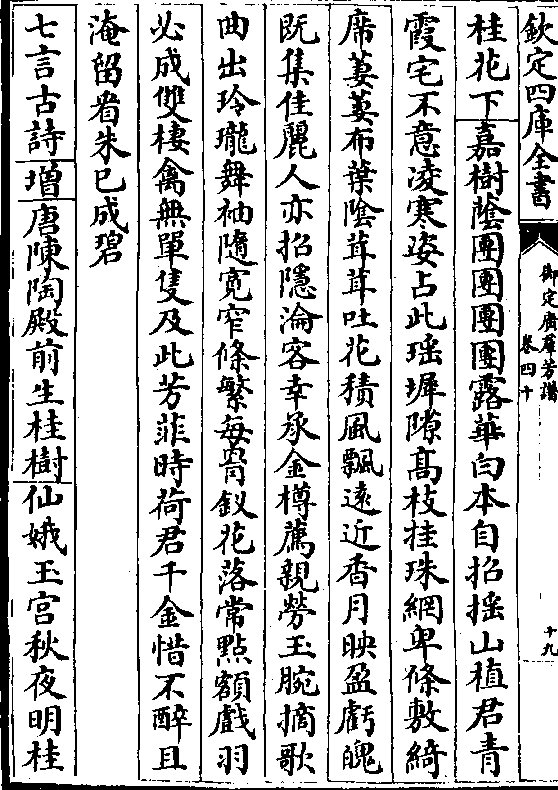 欽定四庫全書
御定廣羣芳譜
卷四十
十九
桂花下嘉樹蔭團團團團露華白本自招揺山植君青
霞宅不意凌寒姿占此瑶墀隙髙枝挂珠網卑條敷綺
席萋萋布葉陰茸茸吐花積風飄遠近香月映盈虧魄
既集佳麗人亦招隠淪客幸承金樽薦親勞玉腕摘歌
曲出玲瓏舞袖隨寛窄條繁每骨釵花落常㸃額戲羽
必成雙棲禽無單隻及此芳菲時荷君千金惜不醉且
淹留看朱已成碧
七言古詩增唐陳陶殿前生桂樹仙娥玉宫秋夜明桂